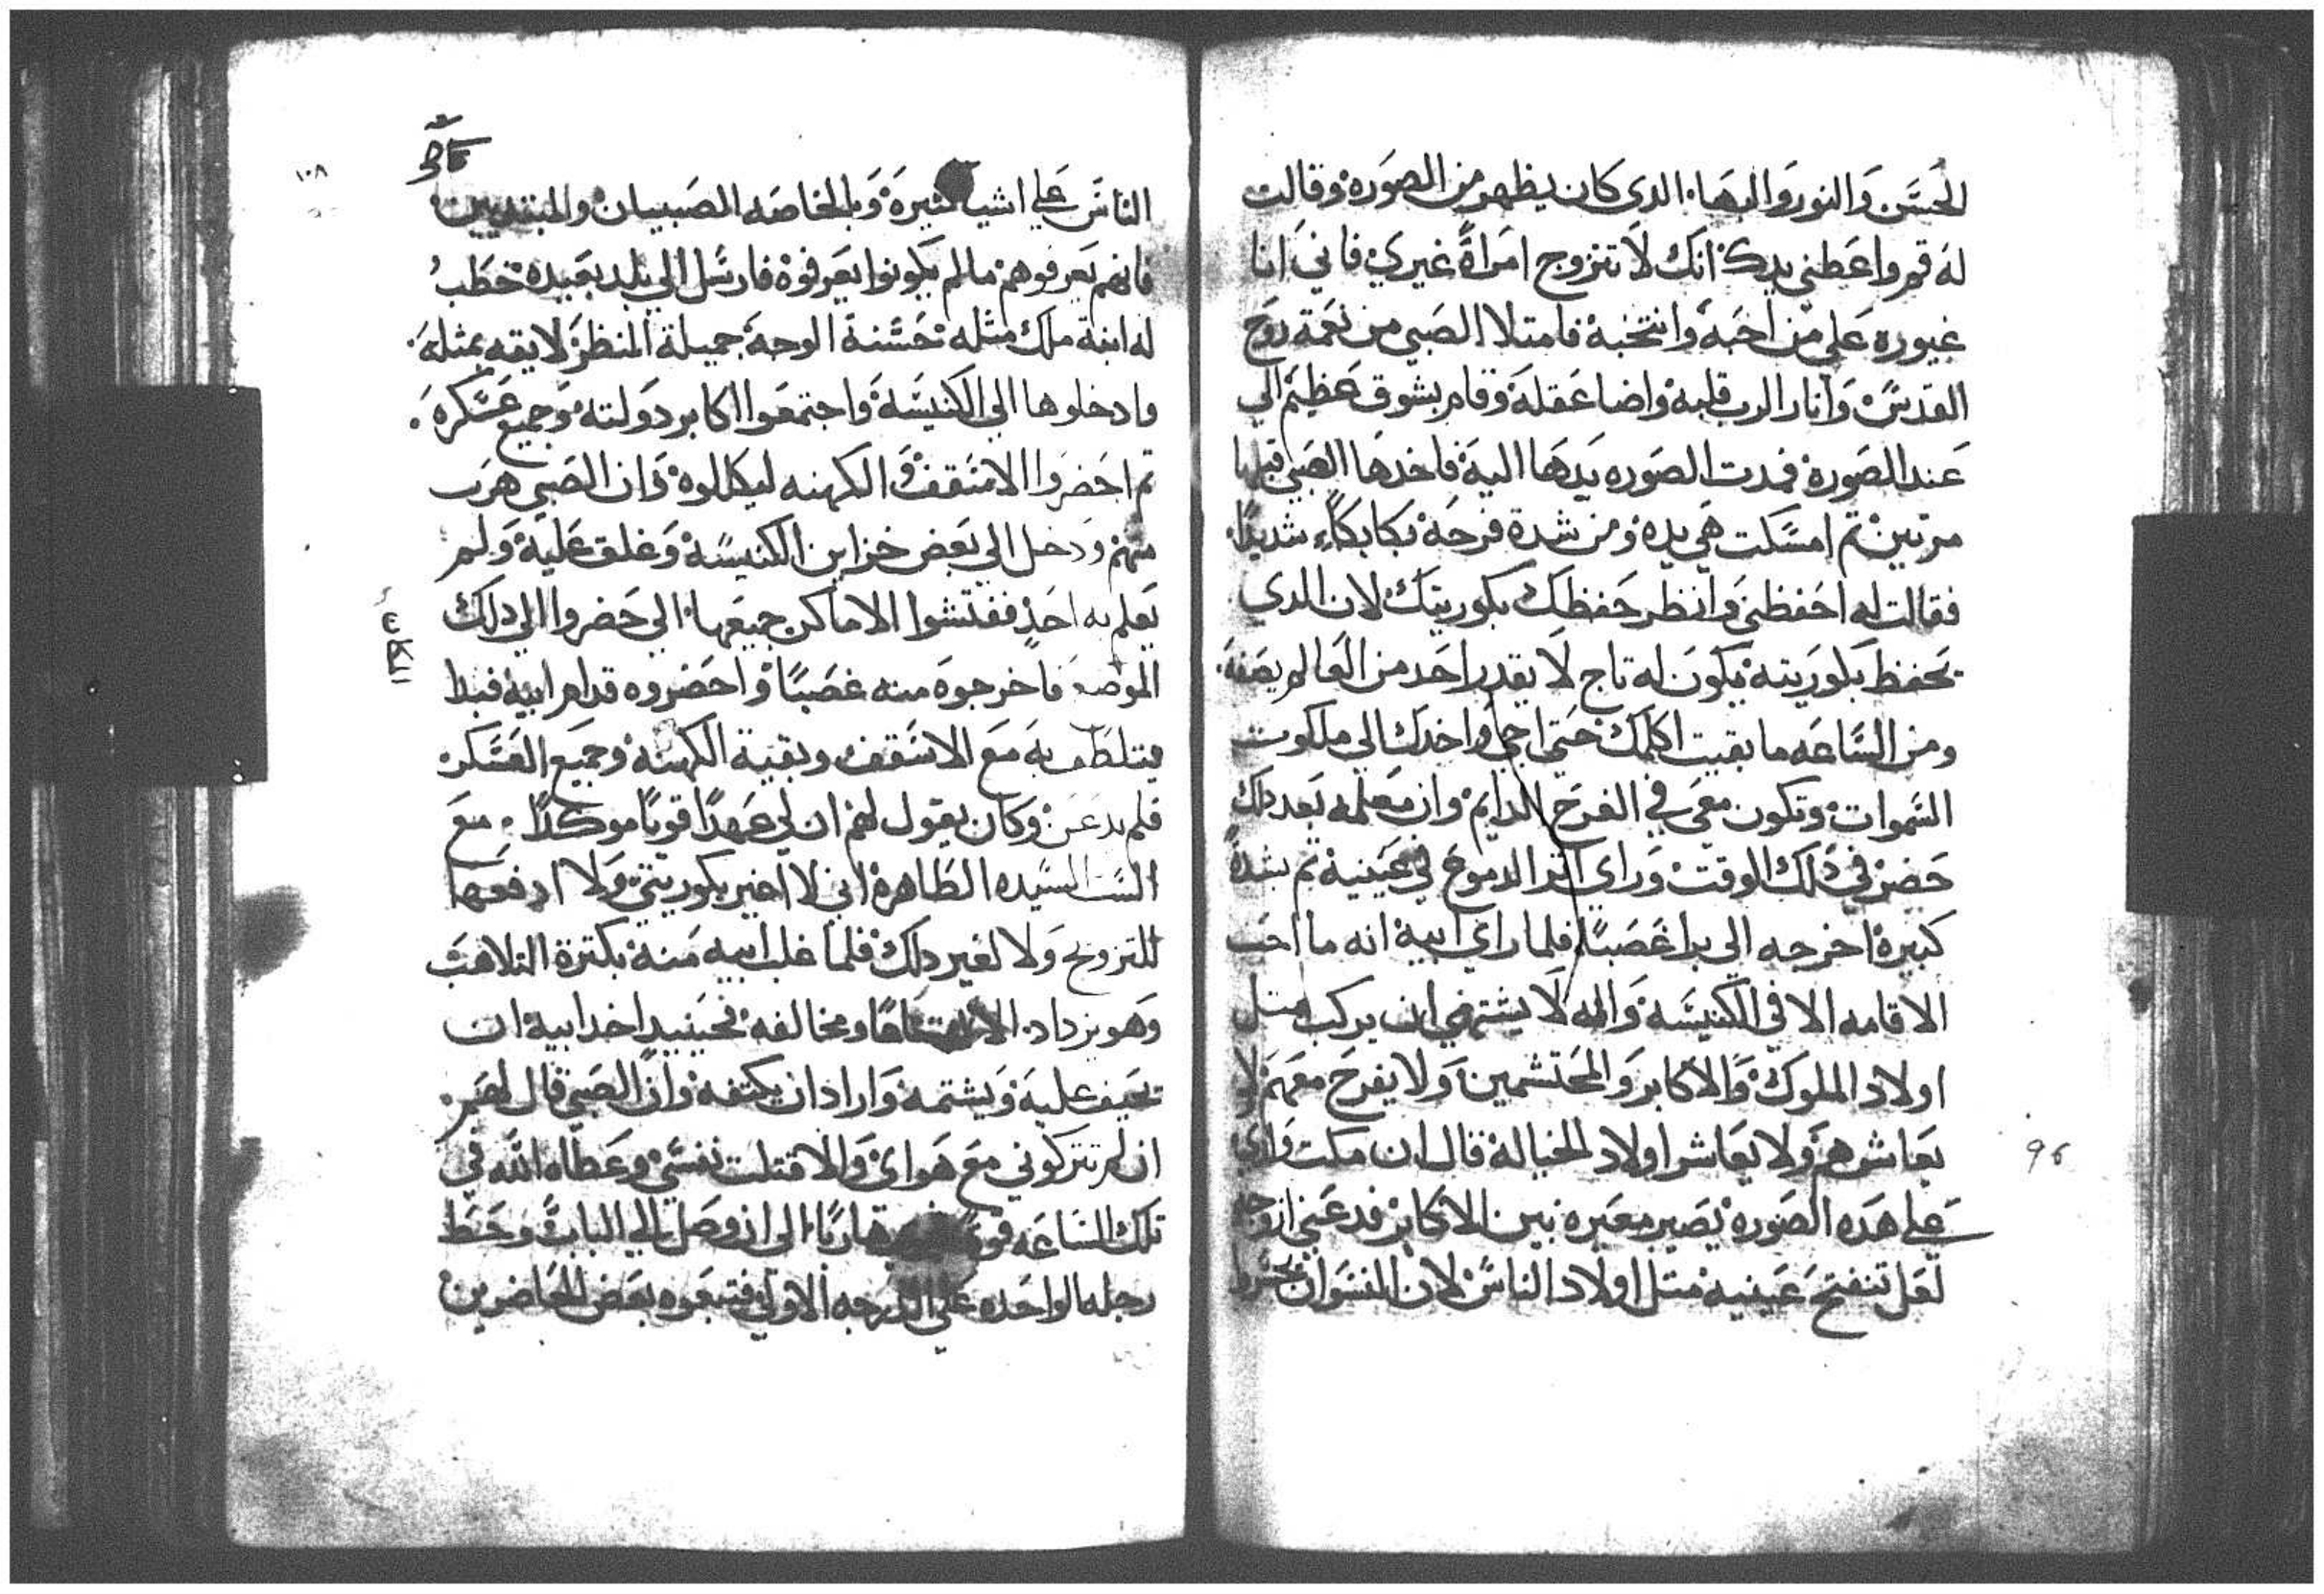 الحسن والنور والبهاء الدى كان يظهر من الصوره وقالت
له قم واعطني يدك انك لا تتزوج امراة غيري فاني انا
غيوره علي من احبه وانتخبه فامتلا الصبي من نعمة روح
القدس وانار الرب قلبه واضا عقله وقام بشوق عظيم الي
عند الصورة فمدت الصوره يدها اليه فاخدها الصبي قبلها
مرتين تم امسكت هي يده ومن شدة فرحه بكا بكاء شديدا
فقالت له احفظني وانظر حفظك بكوريتك لان الدي
يحفظ بكوريته يكون له تاج لا يقدر احد من العالم يصفه
ومن الساعه ما بقيت اكلمك حتي اجي واخدك الي ملكوت
السموات وتكون معي في الفرح الدايم وان معلمه بعد دلك
حضر في دلك الوقت وراي اتر الدموع في عينيه تم بشدة
كبيرة اخرجه الي برا غصبا فلما راي ابيه انه ما احب
الاقامه الا في الكنيسه وانه لا يشتهي ان يركب متل
اولاد الملوك والاكابر والمحتشمين ولا يفرح معهم لا
يعاشرهم ولا يعاشر اولاد الخياله قال ان مكت ولدي
علي هده الصوره يصير معيره بين الاكابر فدعني ازوجه
لعل تنفتح عينيه متل اولاد الناس لان النسوان
١٠٨
الناس علي اشيا كثيرة وبالخاصه الصبيان والمبتديين
فانهم يعرفوهم مالم يكونوا يعرفوه فارسل الي بلد بعيده خطب
له ابنة ملك مثله حسنة الوجه جميلة المنظر لايقه بمثله
وادخلوها الي الكنيسه واجتمعوا اكابر دولته وجميع عسكره
تم احضروا الاسقف والكهنه ليكللوه وان الصبي هرب
منهم ودخل الي بعض خزاين الكنيسة وغلق عليه ولم
يعلم به احد ففتشوا الاماكن جميعها الي حضروا الي دلك
الموضع فاخرجوه منه غصبا واحضروه قدام ابيه فبدا
يتلطف به مع الاسقف وبقية الكهنه وجميع العسكر
فلم يدعن وكان يقول لهم ان لي عهدا قويا موكدا مع
الست السيده الطاهرة اني لا اغير بكوريتي ولا ادفعها
للتزويج ولا لغير دلك فلما غلب ابيه منه بكترة
وهو يزداد ومخالفه فحينيد اخد ابيه ان
يحيف عليه ويشتمه واراد ان يكتفه وان الصبي قال لهم
ان لم تتركوني مع هواي والا قتلت نفسي وعطاه الله في
تلك الساعه قوة هاربا الي ان وصل الي الباب وحط
رجله الواحده علي الدرجه الاولي فتبعوه بعض الحاضرين
96